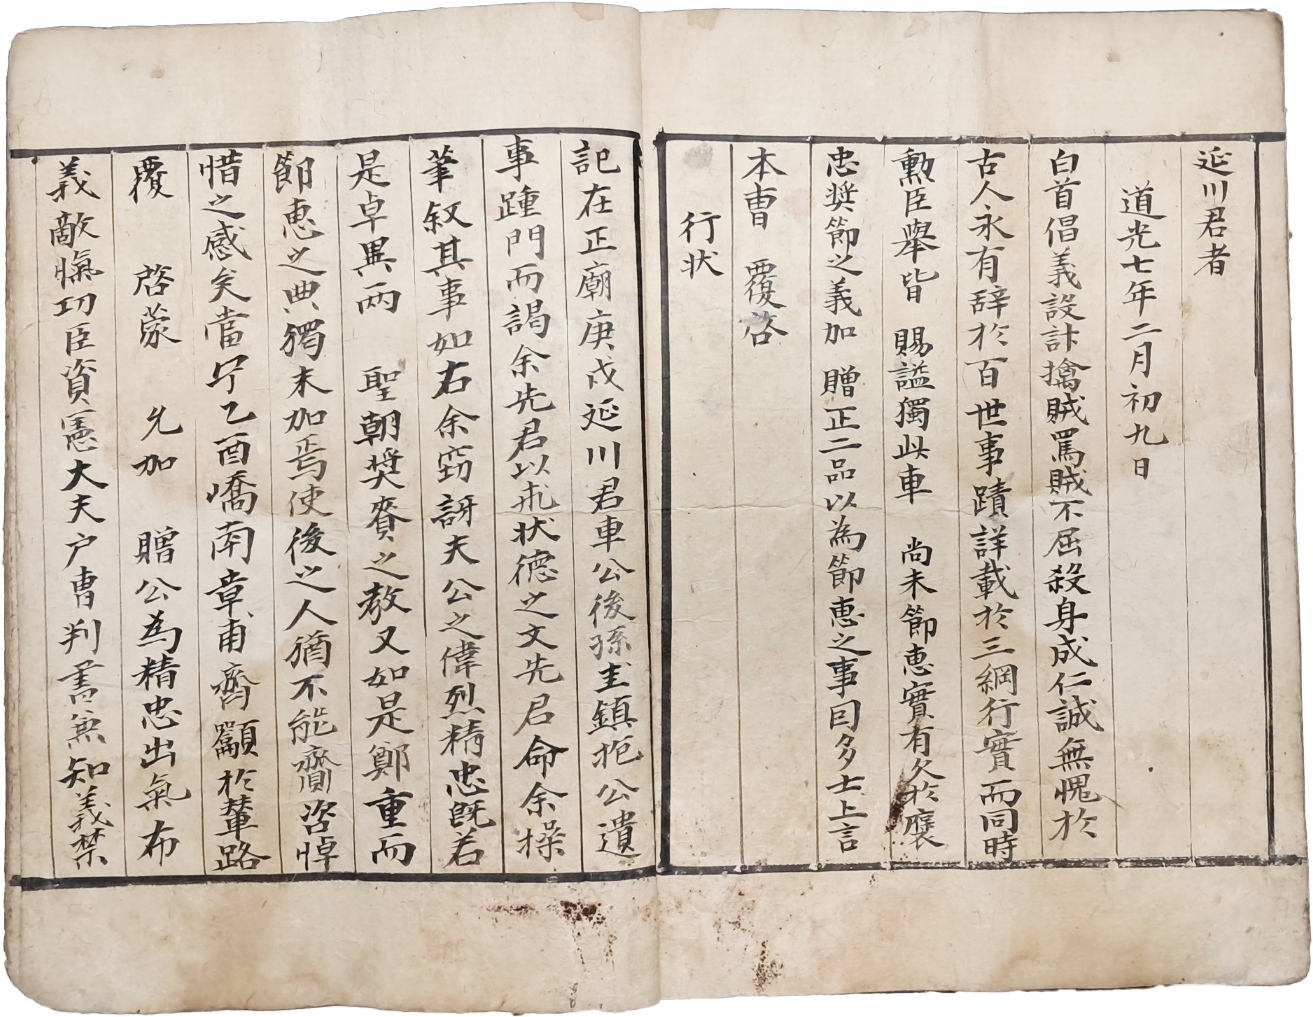 延川君者
道光七年二月初九日
白首倡義設計擒賊罵賊不屈殺身成仁誠無愧於
古人永有辞於百世事蹟詳載於三綱行實而同時
勲臣舉皆 賜謚獨此車 尚未節惠實有欠於褒
忠奬節之義加 贈正二品以為節惠之事因多士上言
本曹 覆啓
行状
記在正廟庚戌延川君車公後孫圭鎮抱公遺
事踵門而謁余先君以求状德之文先君命余操
筆叙其事如右余窃訝夫公之偉烈精忠既若
是卓異而 聖朝奬賚之教又如是鄭重而
節惠之典獨未加焉使後之人猶不能齎咨悼
惜之感矣當宁乙酉嶠南章甫齊顒於輦路
覆 啓蒙 允加 贈公為精忠出氣布
義敵愾功臣資憲大夫户曹判書兼知義禁